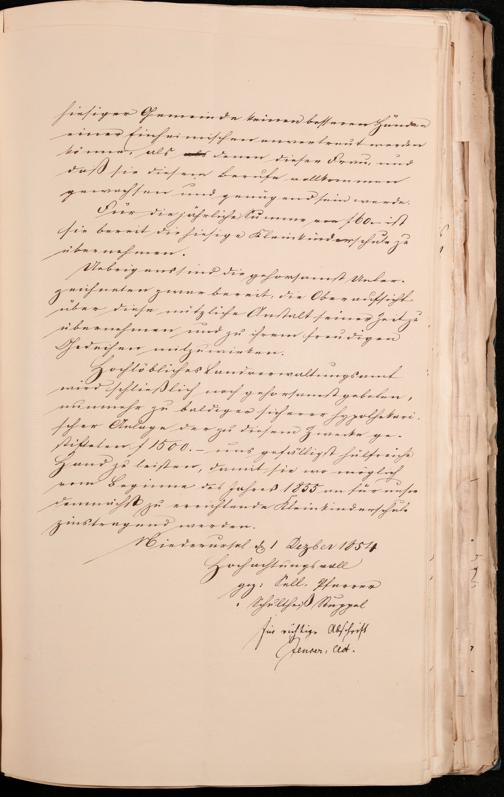 hiesiger Gemeinde keinen besseren Händen
einer Einheimischen anvertraut werden
könne, als denen dieser Frau, und
daß sie diesem Berufe vollkommen
gewachsen und genügend sein werde.
Für die jährliche Summe von f 60.- ist
sie bereit die hiesige Kleinkinderschule zu
übernehmen.
Uebrigens sind die gehorsamst Unter-
zeichneten zwar bereit, die Oberaufsicht
über diese nützliche Anstalt seiner Zeit zu
übernehmen und zu ihrem freudigen
Gedeihen mitzuwirken.
Hochlöbliches Landverwaltungsamt
wird schließlich noch gehorsamst gebeten,
nunmehr zu baldiger sicherer hypothekari-
scher Anlage der zu diesem Zwecke ge-
stifteten f 1500.- uns gefälligst hülfreiche
Hand zu leisten, damit sie wo möglich
vom Beginne des Jahres 1855 an für unsre
demnächst zu errichtende Kleinkinderschule
zinstragend werden.
Niederursel d 1 Dezber 1854
Hochachtungsvoll
gez: Pfarrer
Schultheiß Ruppel
für richtige Abschrift
Act.